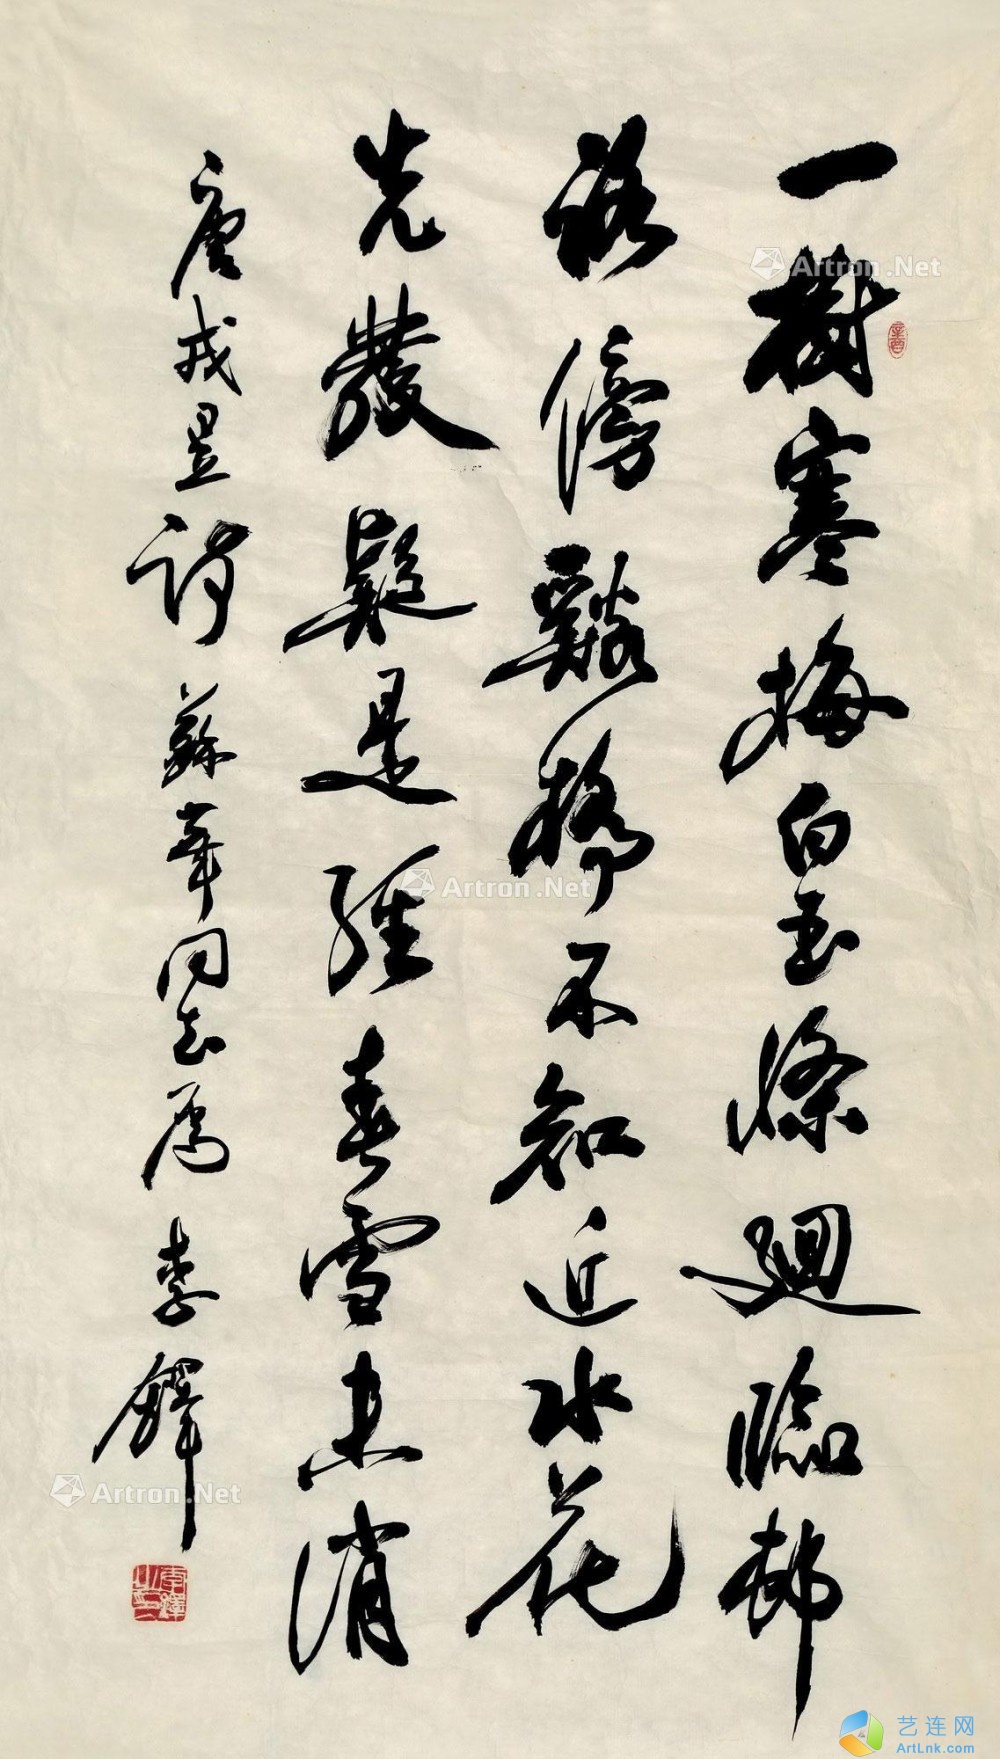 一樹寒梅白玉條迴臨邨
路傍谿橋不知近水花
先發疑是經春雪未消
唐戎昱詩 蘇華同志属 李鐸
辛酉
李鐸之印
Artron.Net
Artron.Net
Artron.Net
艺连网
ArtLnk.com